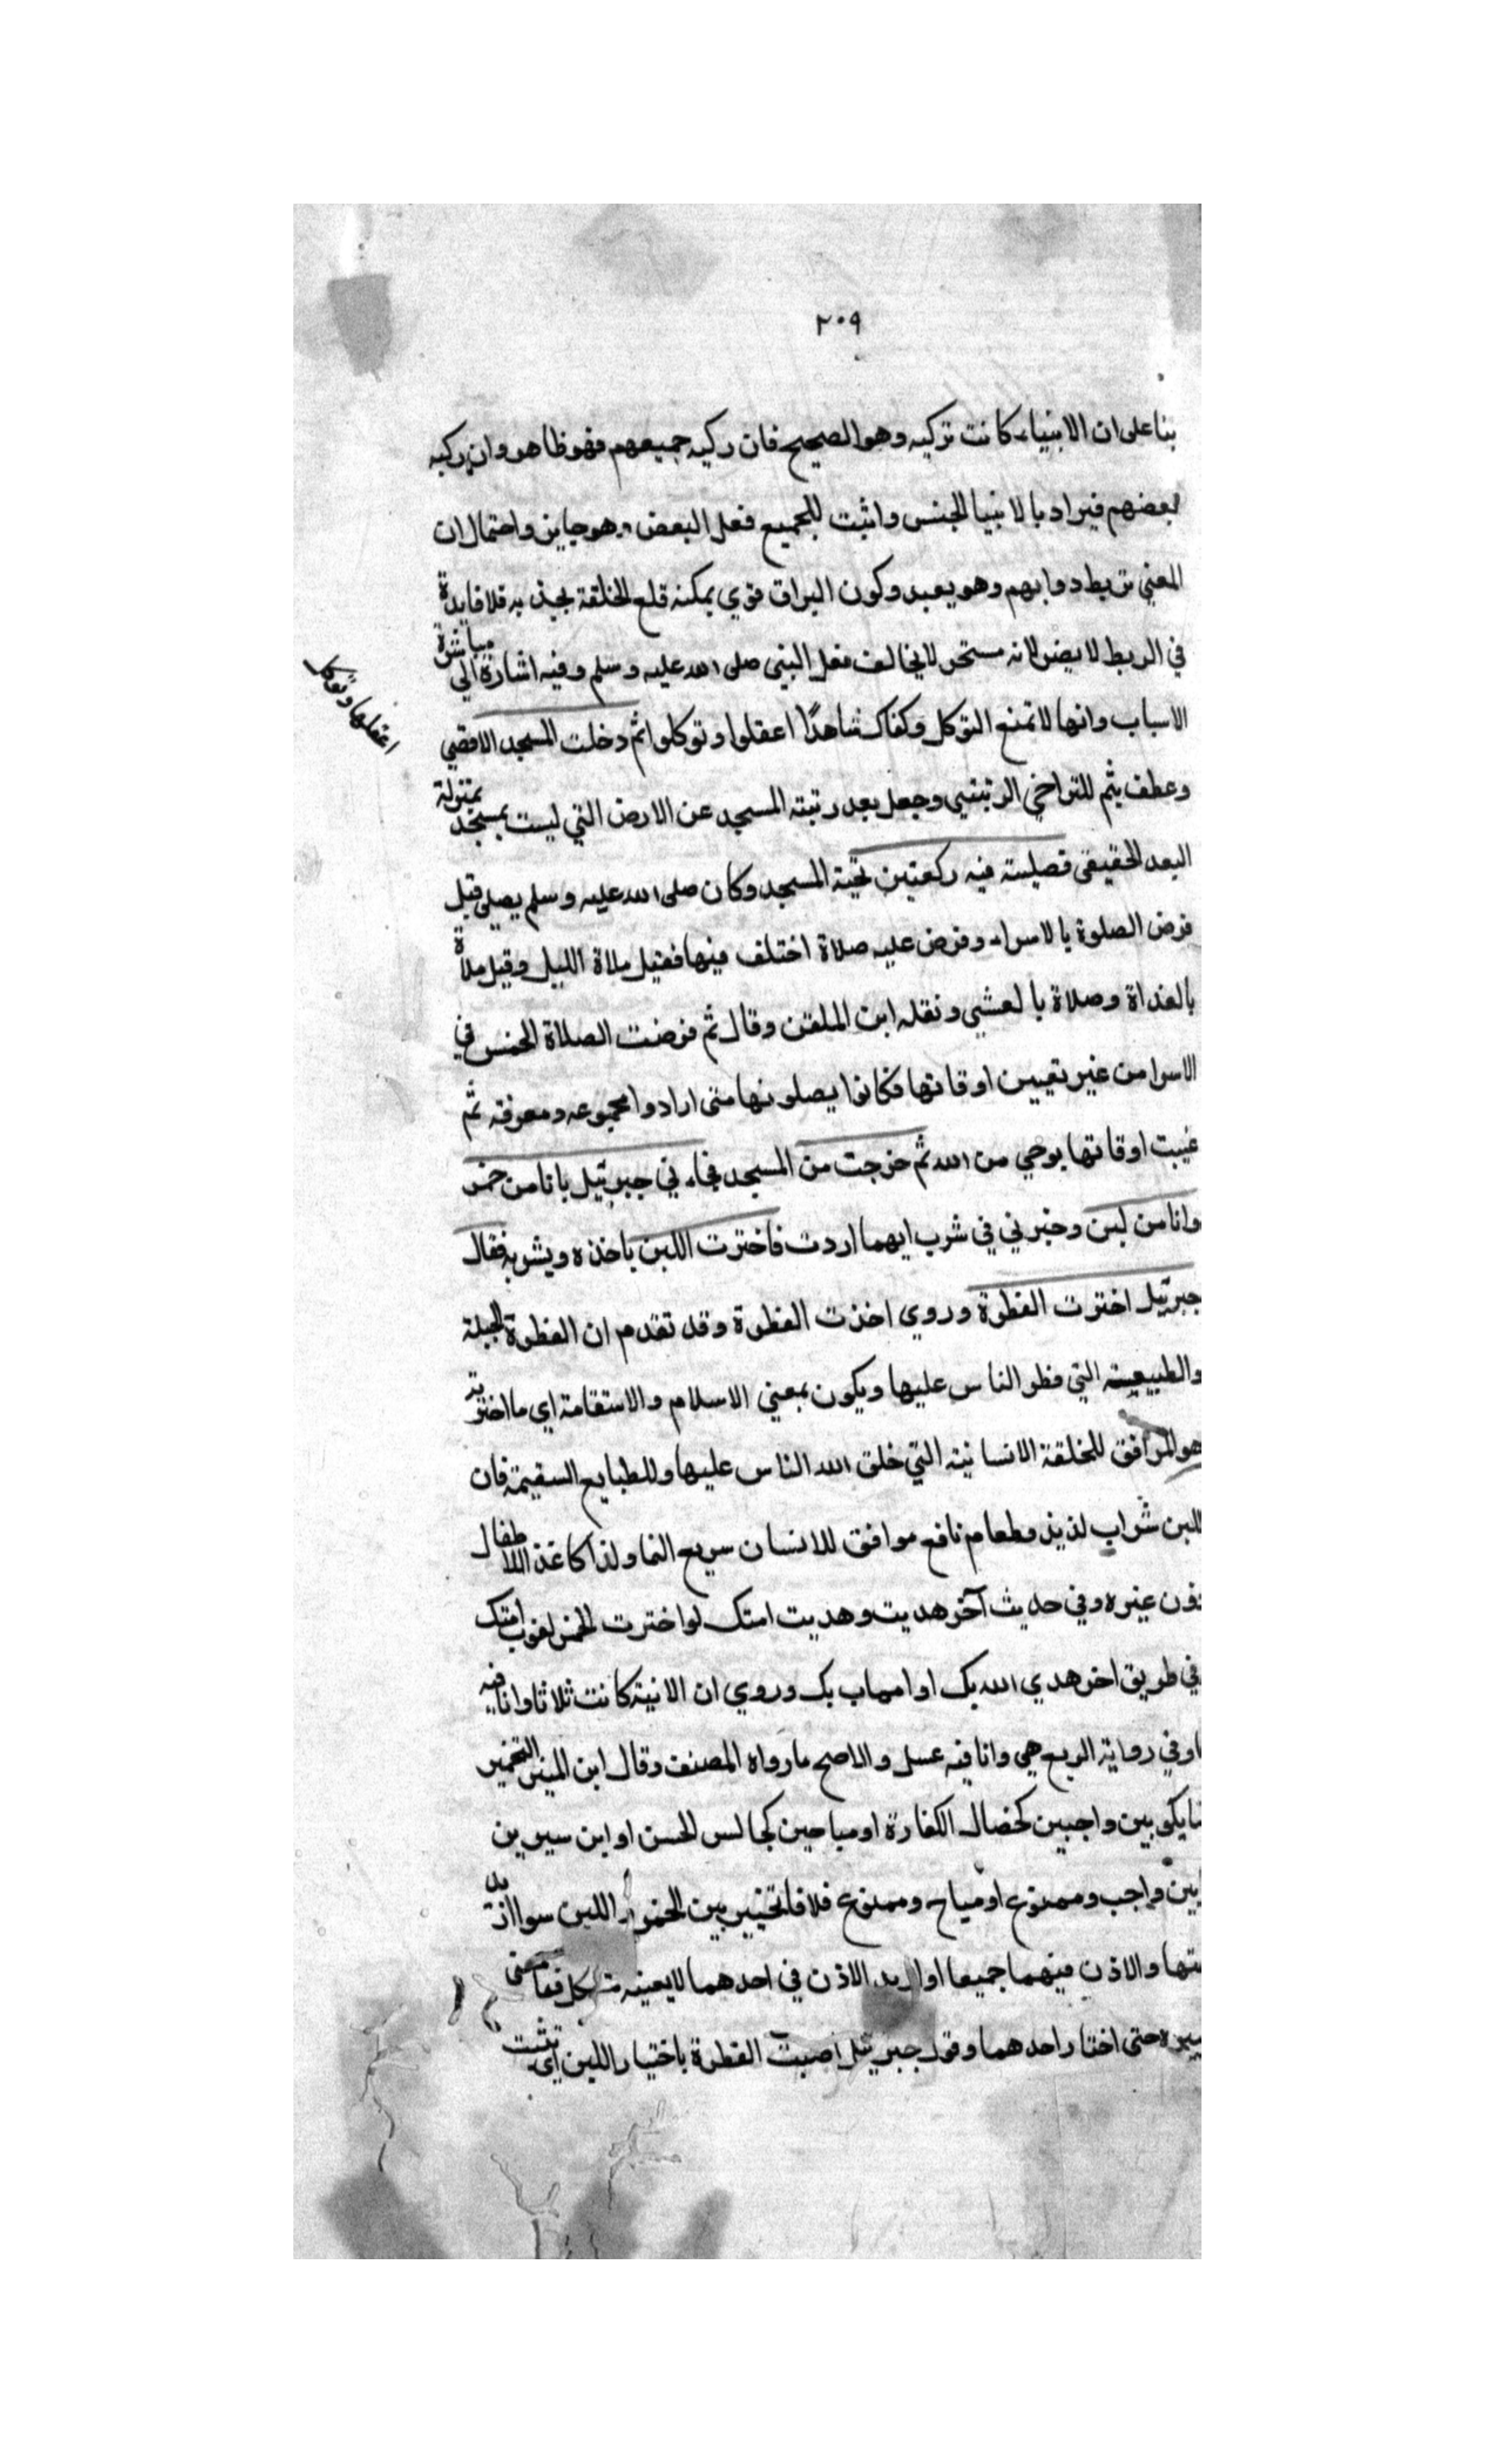 ٢٠٩
بنا على ان الانبياء كانت تركبه وهو الصحيح فان ركبه جميعهم فهو ظاهر وان ركبه
بعضهم فيراد بالانبيا الجنس واثبت للجميع فعل البعض وهو جايز واحتمال ان
المعني تربط دوابهم وهو بعيد وكون البراق قوي يمكنه قلع الحلقة بجذبه فلا فايدة
في الربط لا يضر لانه مستحر لا يخالف فعل النبي صلى الله عليه وسلم وفيه اشارة الي مباشرة
الاسباب وانها لا تمنع التوكل وكفاك شاهدًا اعقلوا وتوكلوا ثم دخلت المسجد الاقصي
اعقلها وتوكل
وعطف بثم للتراخي الرتبيي وجعل بعد رتبته المسجد عن الارض التي ليست بمسجد بمنزلة
البعد الحقيقي فصليت فيه ركعتين تحية المسجد وكان صلى الله عليه وسلم يصلي قبل
فرض الصلوة بالاسراء وفرض عليه صلاة اختلف فيها فقيل صلاة الليل وقيل صلاة
بالغداة وصلاة بالعشي ونقله ابن الملقن وقال ثم فرضت الصلاة الخمس في
الاسرا من غير تعيين اوقاتها فكانوا يصلونها متى ارادوا مجموعه ومعرفه ثم
عيبت اوقاتها بوحي من الله ثم خرجت من المسجد فجاءني جبرئيل بانا من خمر
وانا من لبن وخبرني في شرب ايهما اردت فاخترت اللبن باخذه ويشربه فقال
جبرئيل اخترت الفطرة وروي اخذت الفطرة وقد تقدم ان الفطرة الجبلة
والطبيعة التي فطر الناس عليها ويكون بمعني الاسلام والاستقامة اي ما اخترته
هو الموافق للخلقة الانسانية التي خلق الله الناس عليها وللطبايع السقيمة فان
اللبن شراب لذيذ وطعام نافع موافق للانسان سريع النما ولذا كا غذا للاطفال
دون غيره وفي حديث آخر هديت وهديت امتك لو اخترت الخمر لغوت امتك
في طريق اخر هدي الله بك او اصاب بك وروي ان الانية كانت ثلاثا وانا فيه
ما وفي رواية الربع هي وانا فيه عسل والاصح ما رواه المصنف وقال ابن المنير التخيير
ما يكو بين واجبين كخصال الكفارة او مباحين كجالس الحسن او ابن سيرين
بين واجب وممنوع او مباح وممنوع فلا فالتخيير بين الخمر واللبن سوا
والاذن فيهما جميعا او اريد الاذن في احدهما لا بعينه
حتى اختار احدهما وقول جبرئيل اصبت الفطرة باختيار اللبن اي